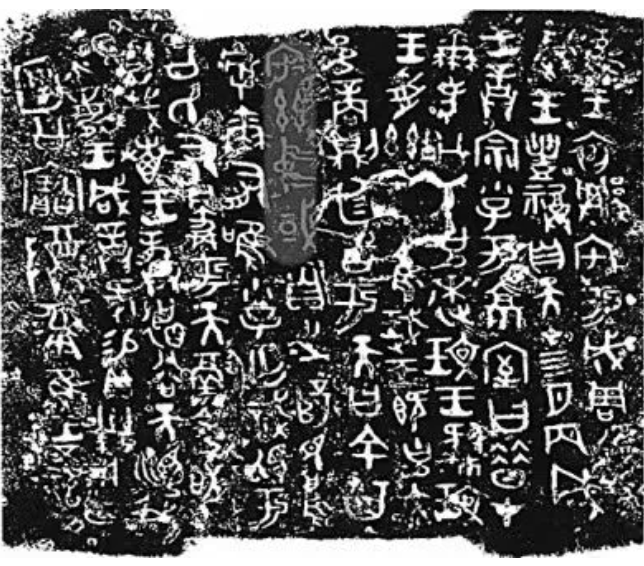 隹王初𨞕宅于成周復𠷎
珷王豐祼自天才四月丙戌
王𢍰宗小子于京室曰昔才
爾考公氏克逨玟王𦘔玟
王受茲大令隹珷王既克大
邑商則廷告于天曰余其
宅茲中或自之乂民烏
虖爾有唯小子亡識視于
公氏有爵于天徹令苟
享戈叀王龏德谷天順我
不敏王咸𢍰何易貝卅朋用乍
公寶尊彝隹王五祀